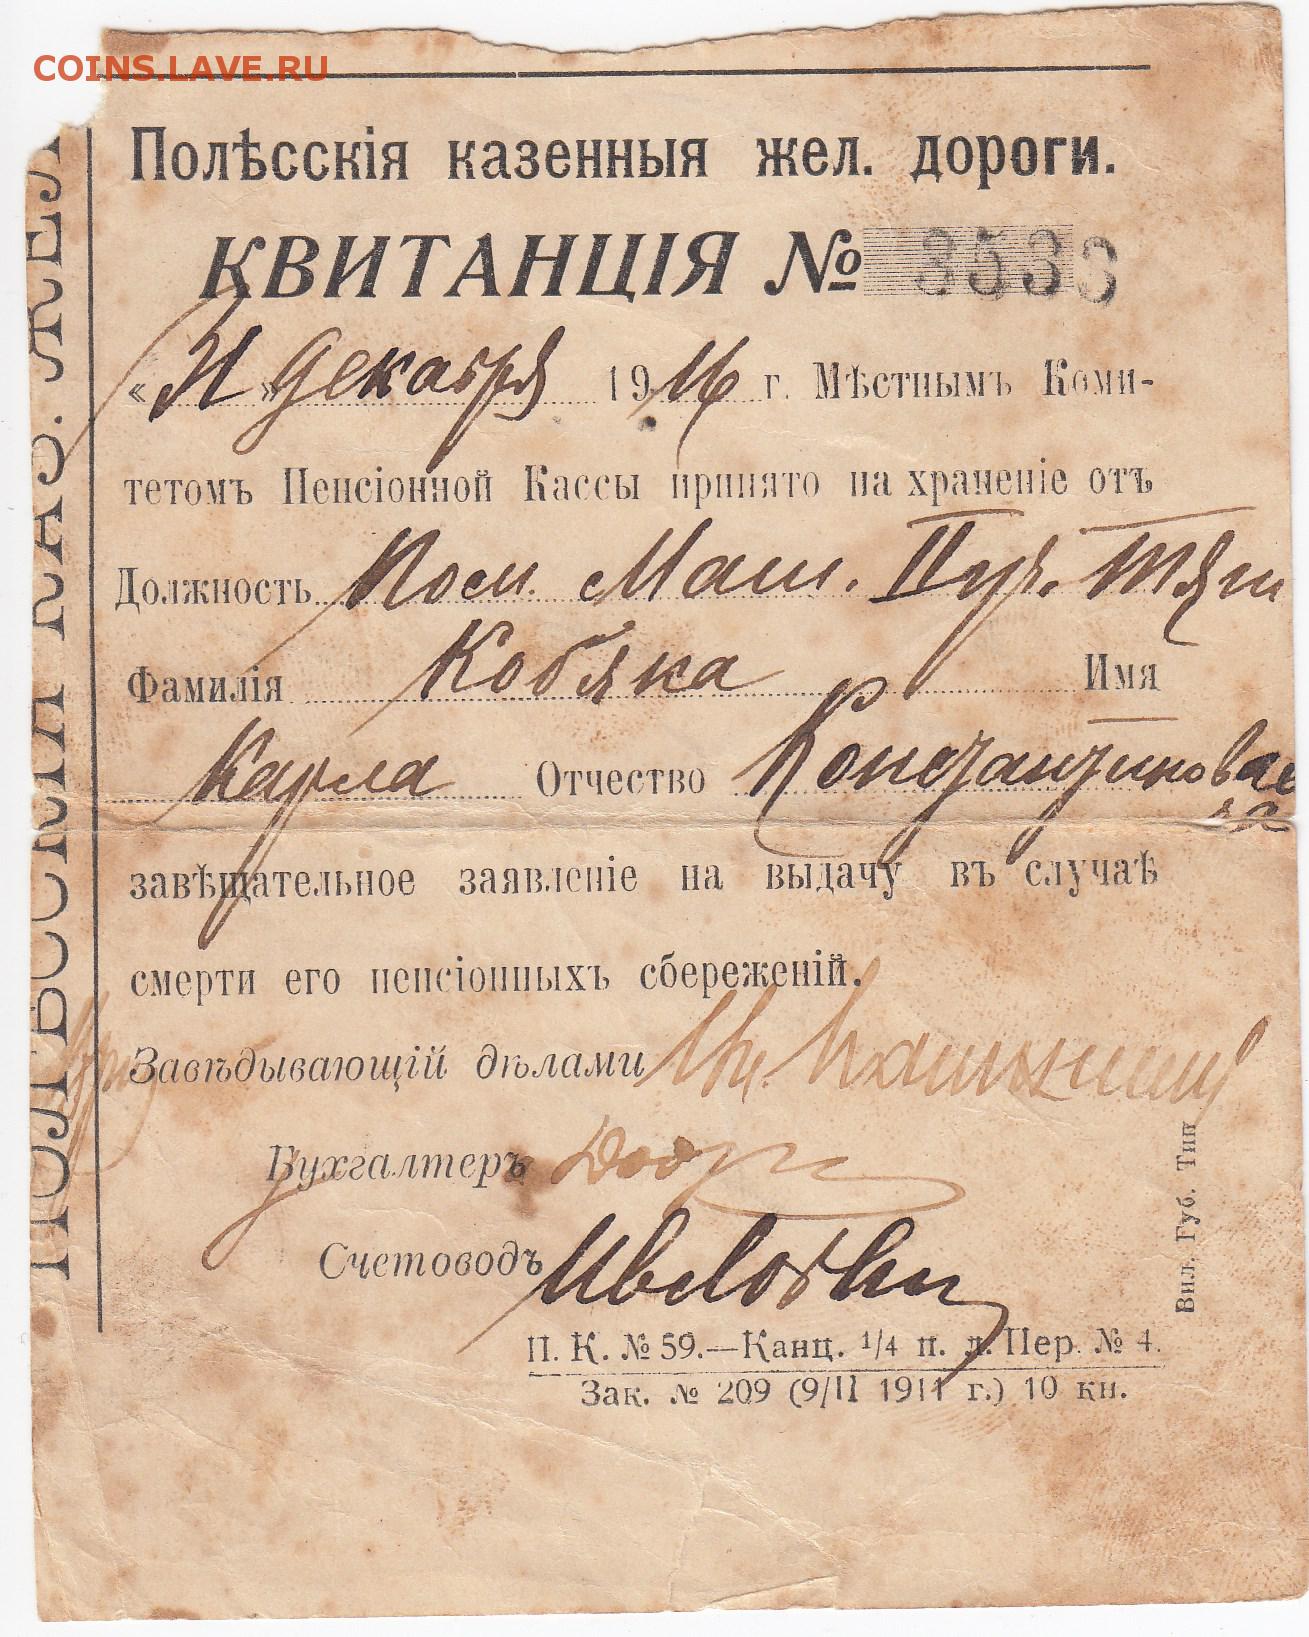 COINS.LAVE.RU
Полѣсскія казенныя жел. дороги.
КВИТАНЦІЯ № 3533
«31» декабря 1916 г. Мѣстнымъ Коми-
тетомъ Пенсіонной Кассы принято на храненіе отъ
Должность Пом. Маш. II уч. Тяги
Фамилія Кобяка Имя
Карла Отчество Константинова
завѣщательное заявленіе на выдачу въ случаѣ
смерти его пенсіонныхъ сбереженій.
Завѣдывающій дѣлами
Бухгалтеръ
Счетоводъ
П. К. № 59.—Канц. 1/4 п. л. Пер. № 4.
Зак. № 209 (9/II 1911 г.) 10 кн.
Вил. Губ. Тип
ПОЛѢССКІЯ КАЗ. ЖЕЛ